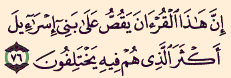 إِنَّ هَٰذَا ٱلْقُرْءَانَ يَقُصُّ عَلَىٰ بَنِىٓ إِسْرَٰٓءِيلَ
أَكْثَرَ ٱلَّذِى هُمْ فِيهِ يَخْتَلِفُونَ ٧٦